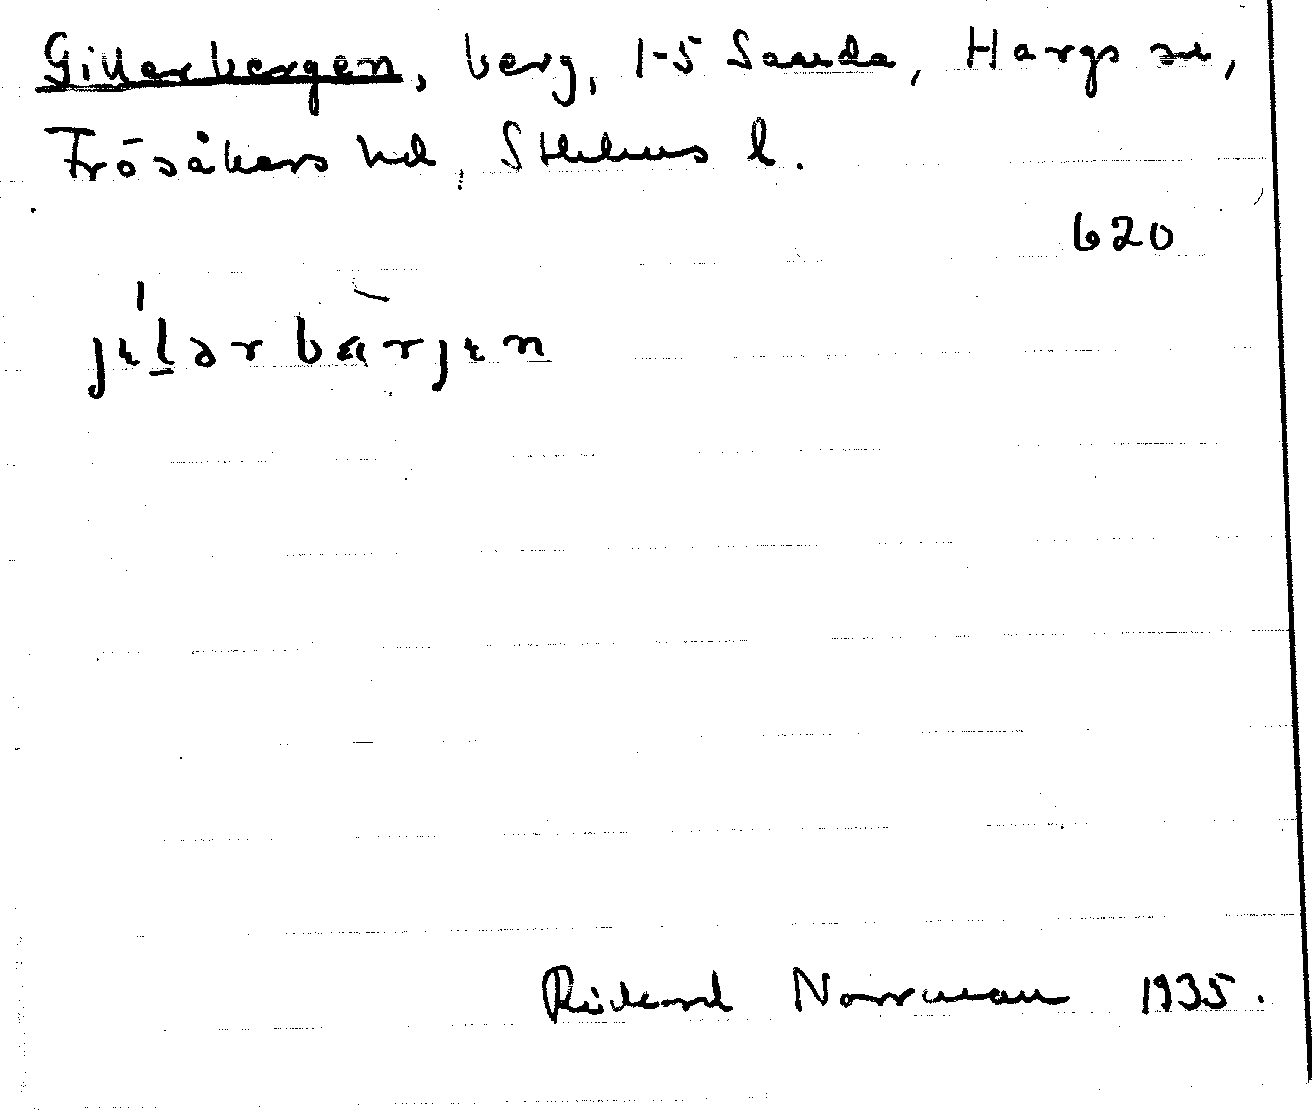 Gillerbergen, berg, 1-5 Sanda, Hargs sn,
Frösåkers hd, Sthlms l.
620
jɩlərbärjɩn
Rickard Norrman 1935.